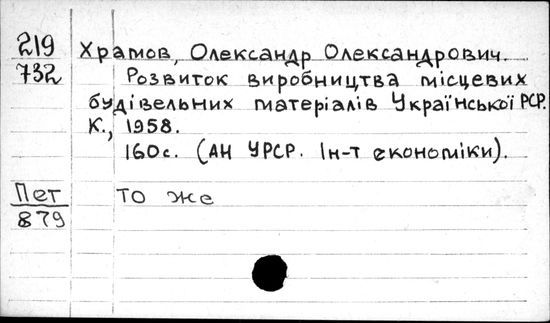 219 Храмов, Олександр Олександрович.
732 Розвиток виробництва місцевих
будівельних матеріалів Української РСР.
К., 1958.
160с. (АН УРСР. Ін-т економіки).
Пет то же
879